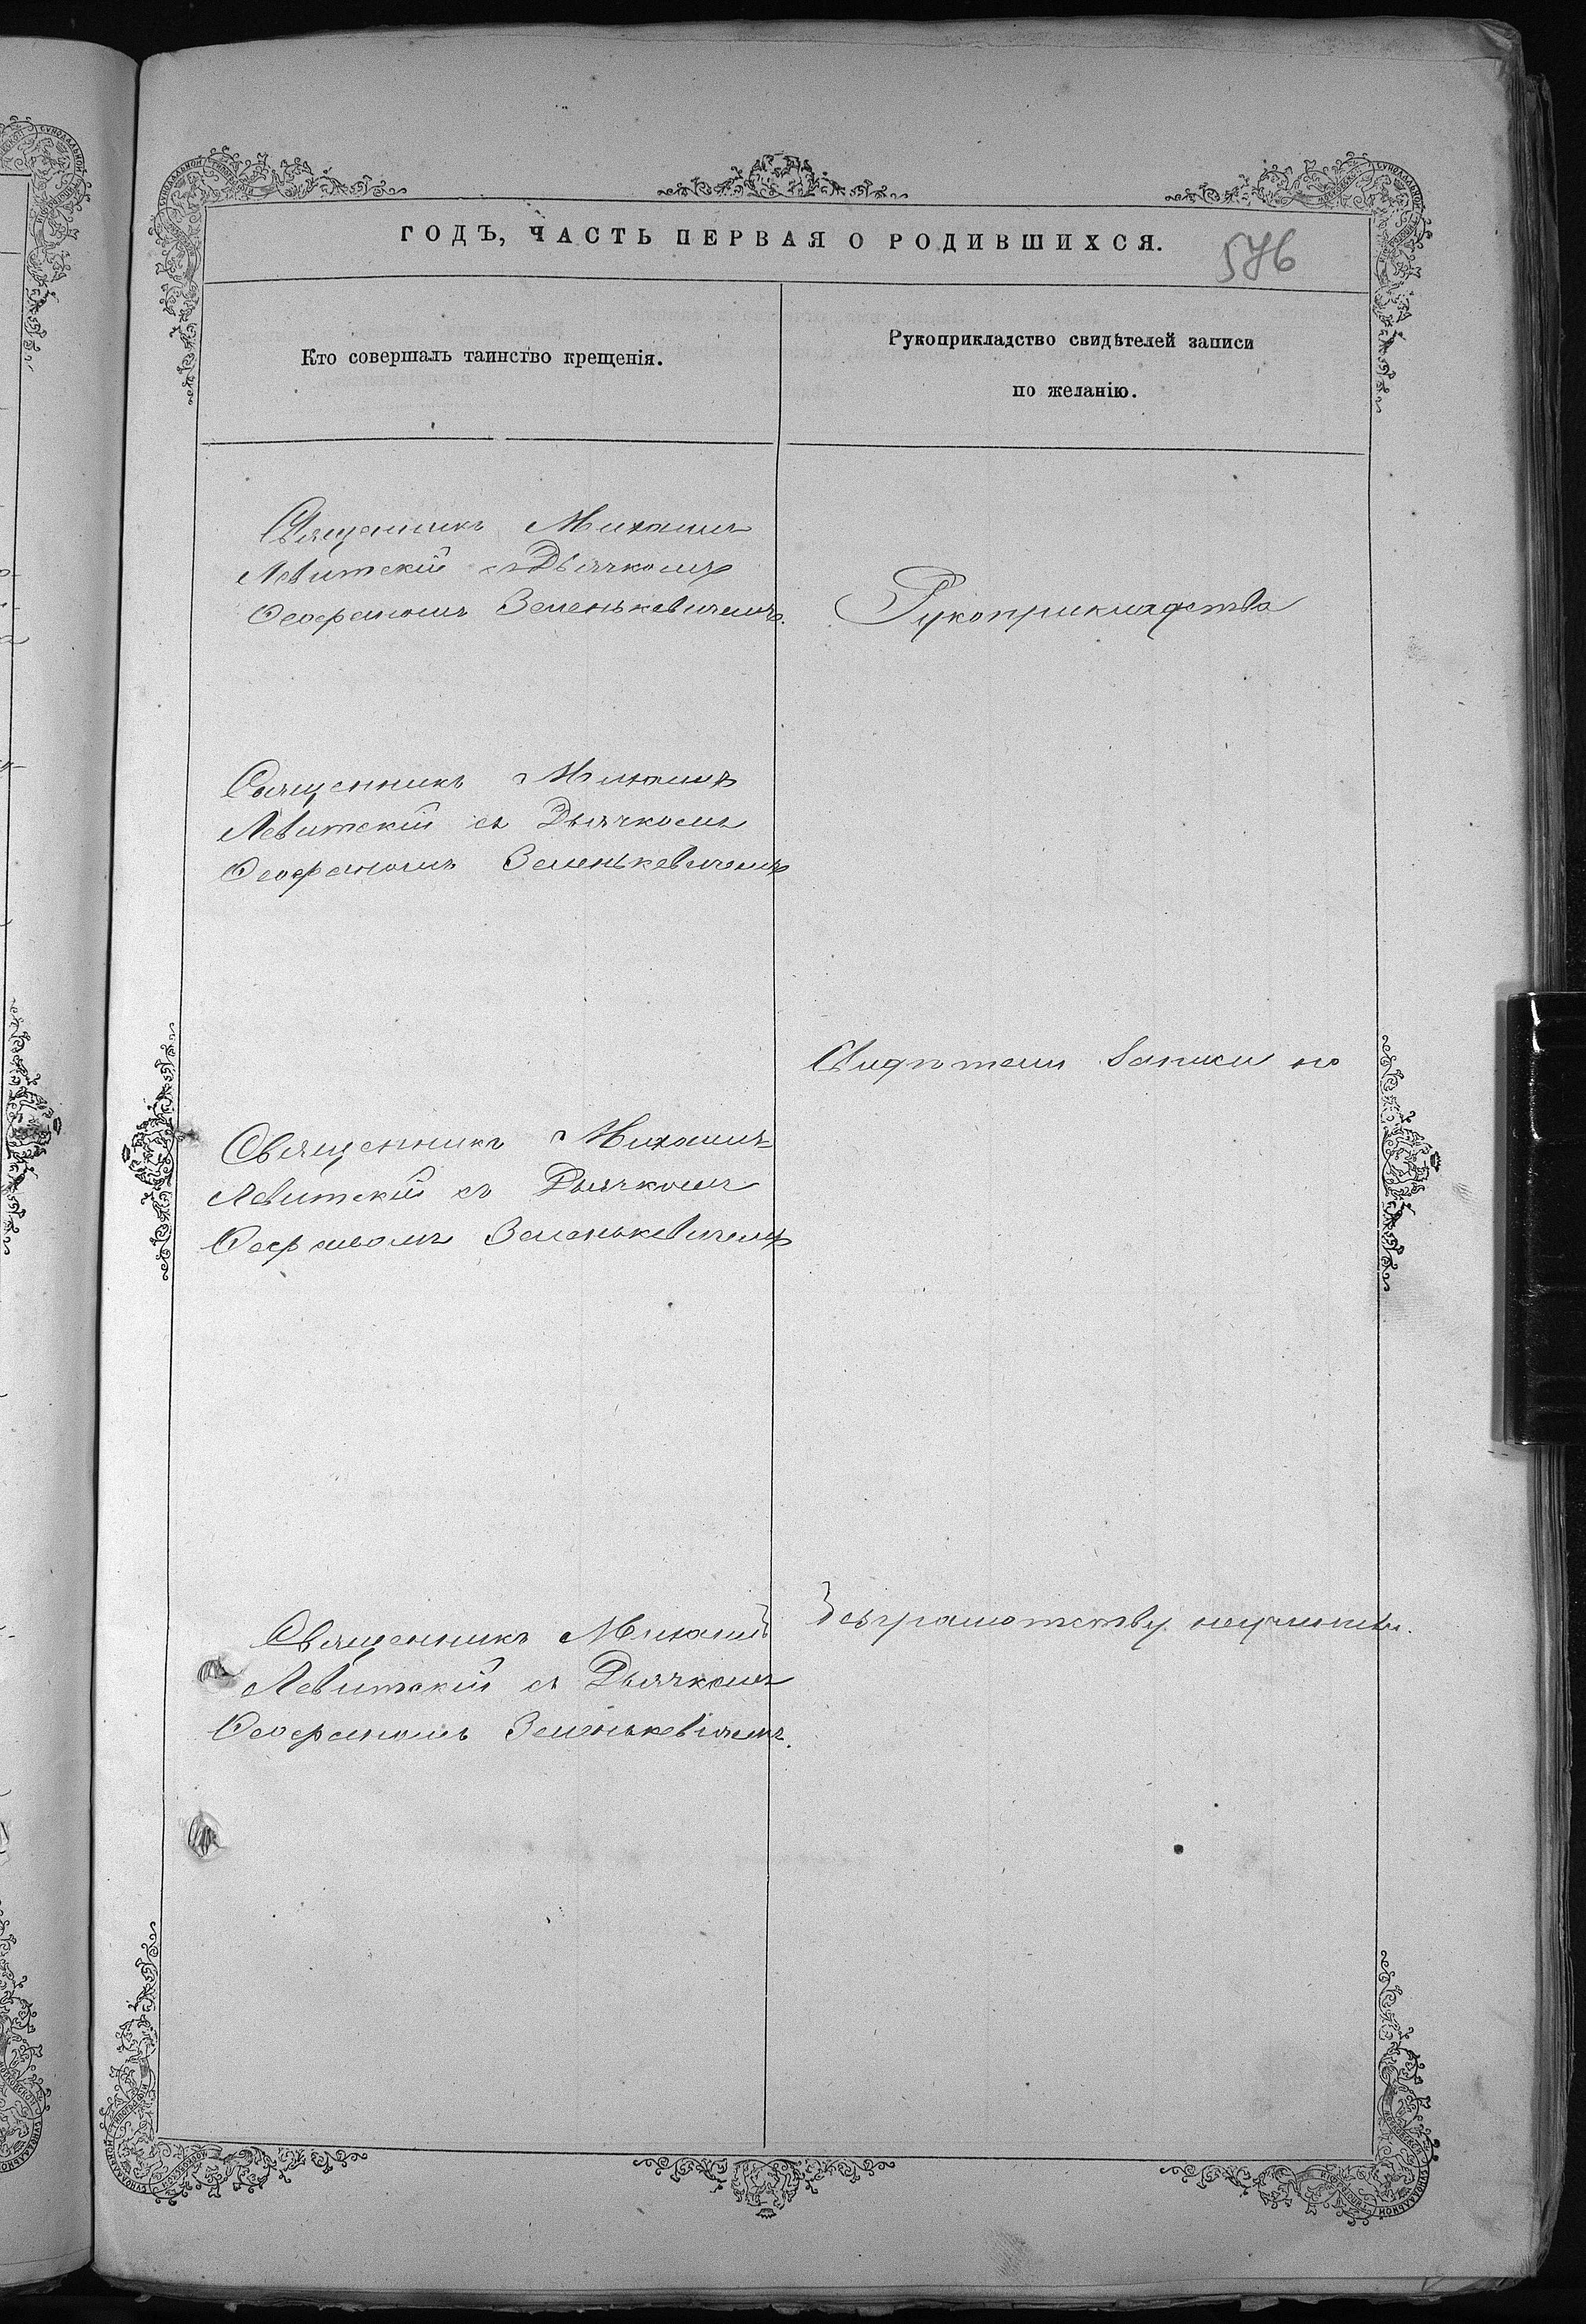 ГОДЪ, ЧАСТЬ ПЕРВАЯ О РОДИВШИХСЯ.
576
Кто совершалъ таинство крещенія.
Рукоприкладство свидѣтелей записи
по желанію.
Священникъ Михаилъ
Левитскій съ Дьячкомъ
Ѳеофаномъ Зеленькевичемъ.
Рукоприкладства
Священникъ Михаилъ
Левитскій съ Дьячкомъ
Ѳеофаномъ Зеленькевичемъ
Свидѣтели записи по
Священникъ Михаилъ
Левитскій съ Дьячкомъ
Ѳеофаномъ Зеленькевичемъ
Священникъ Михаилъ
Левитскій съ Дьячкомъ
Ѳеофаномъ Зеленькевичемъ.
безграмотству неучинили.